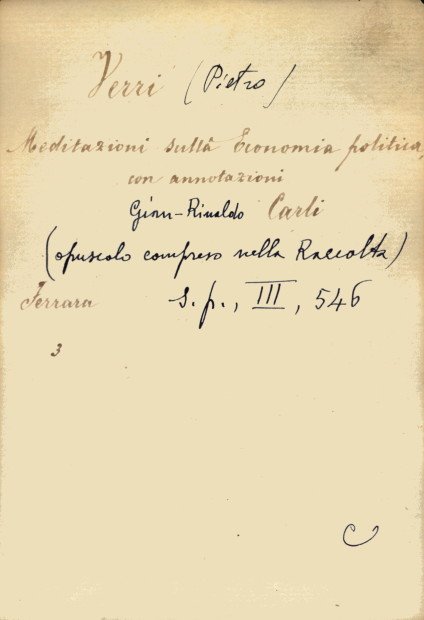 Verri (Pietro)
Meditazioni sulla Economia politica,
con annotazioni
Gian-Rinaldo Carli
(opuscolo compreso nella Raccolta)
Ferrara s.p., III, 546
3
C